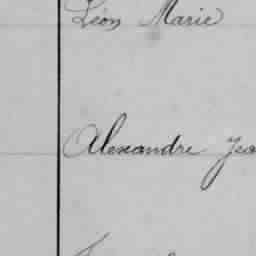 Léon Marie
Alexandre Jea